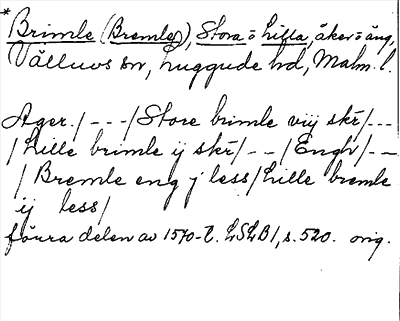 * Brimle (Bremle), Stora= o Lilla, åker= o äng,
Välluvs sn, Luggude hd, Malm. l.
Ager. / - - - / Store brimle viij skr / - - -
/ Lille brimle ij skr / - - / Engh / - -
/ Bremle eng j less / Lille bremle
ij less /
förra delen av 1570-t. LSLB 1, s. 520. orig.